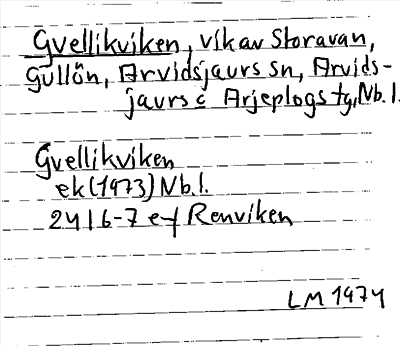 Gvellikviken, vik av Storavan,
Gullön, Arvidsjaurs sn, Arvids-
jaurs o Arjeplogs tg, Nb.l.
Gvellikviken
ek (1973) Nb.l.
24I 6-7 e-f Renviken
LM 1974